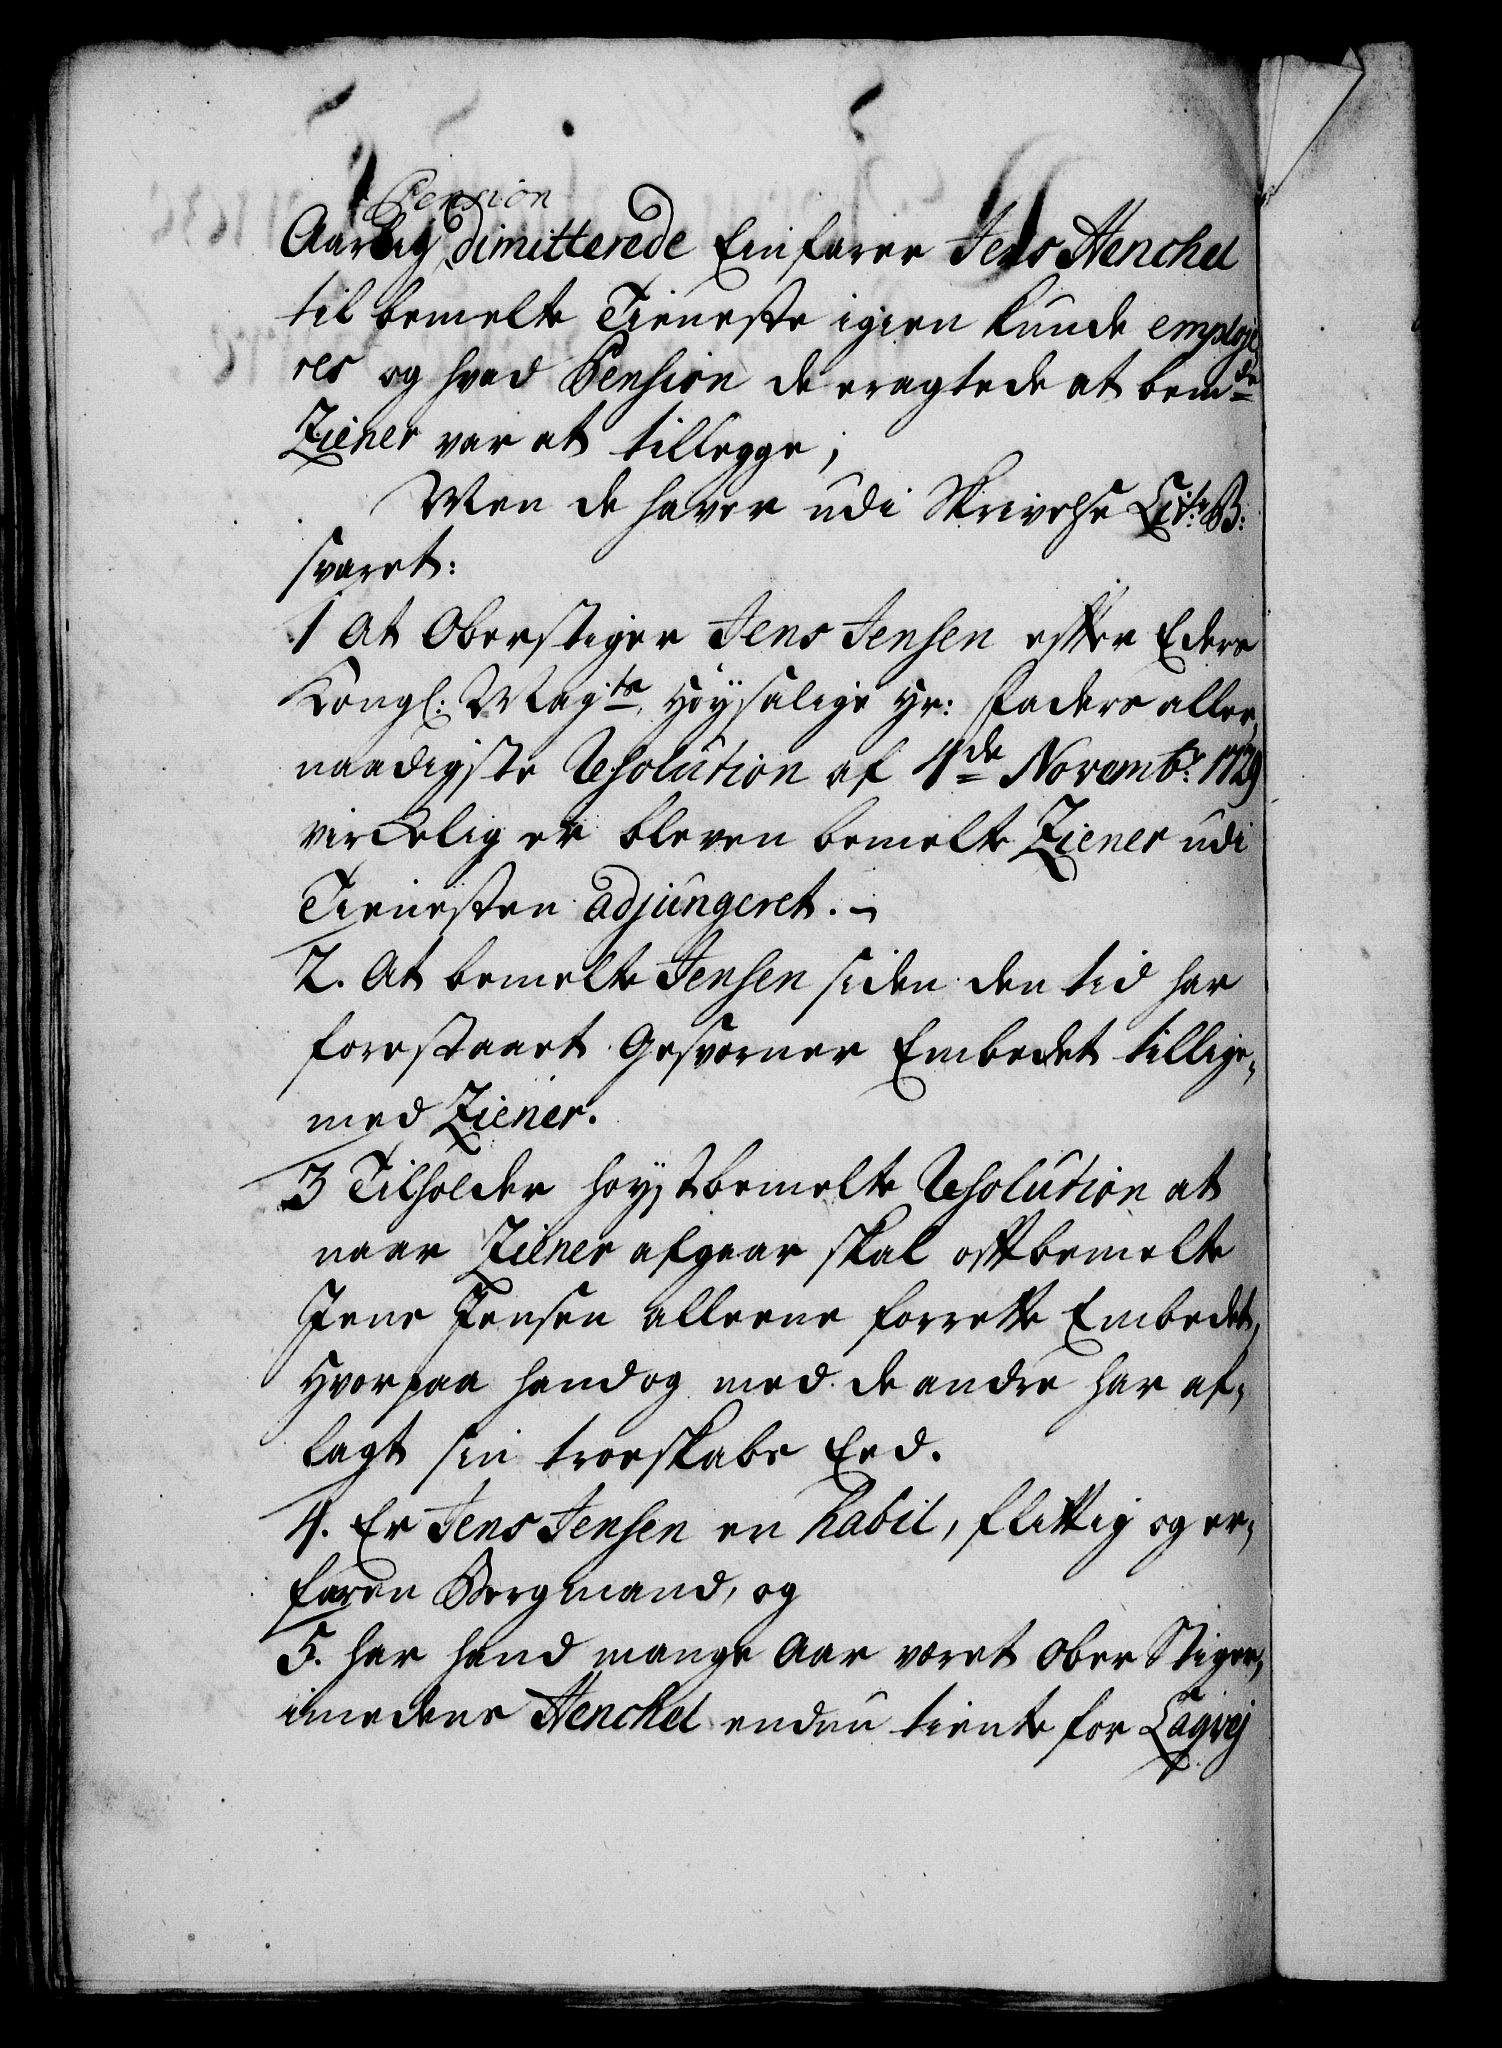 Pension
Aarlig dimitterede Einfarer Jens Henchel
til bemelte Tieneste igien kunde employe
res og hvad Pension de eragtede at bemde
Ziener var at tillegge;
Men de haver udi Skrivelse Lit: B:
svaret:
1 At Oberstiger Jens Jensen efter Eders
Kongl: Mayts Høysalige Hr: Faders aller-
naadigste Resolution af 4de Novembr: 1729
virckelig er bleven bemelte Ziener udi
Tienesten adjungeret.
2. At bemelte Jensen siden den tid har
forestaaet Gesvorner Embedet tillige-
med Ziener.
3 Tilholder høystbemelte Resolution at
naar Ziener afgaar skal oftbemelte
Jens Jensen alleene forrette Embedet,
Hvorpaa hand og med de andre har af-
lagt sin troeskabs Eed.
4. Er Jens Jensen en habil, flittig og er-
faren Bergmand, og
5. har hand mange Aar været Ober Stiger,
imedens Henchel endnu tiente for